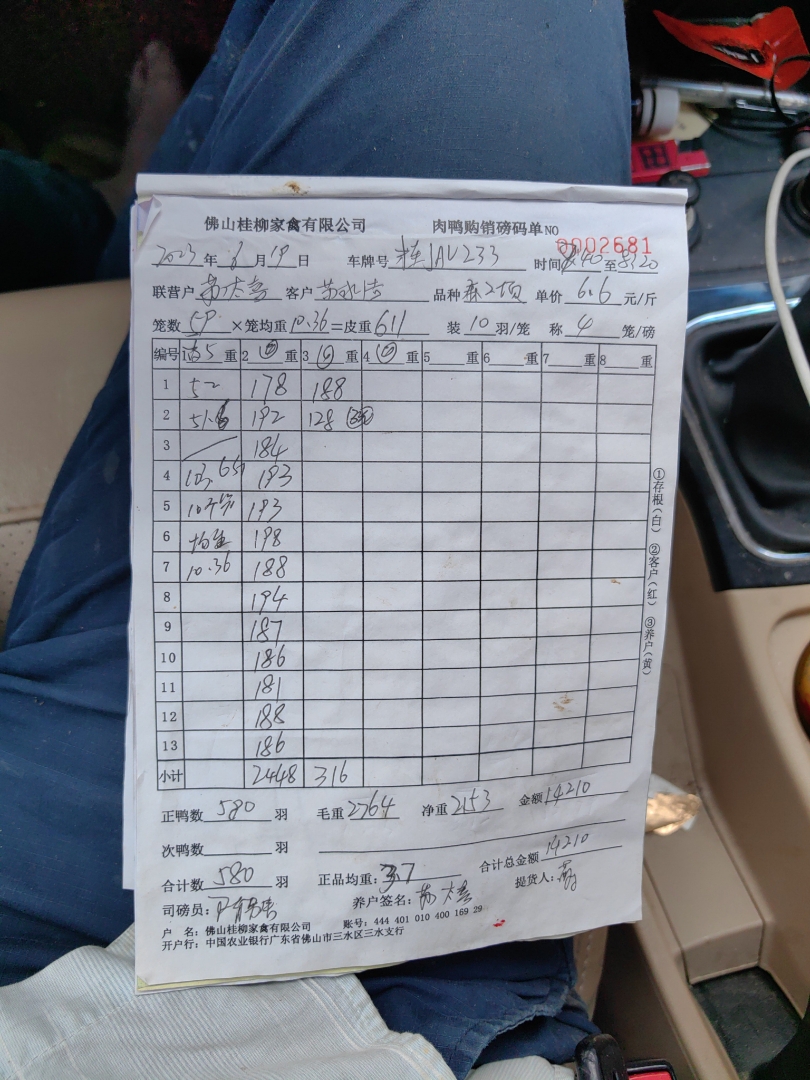 佛山桂柳家禽有限公司 肉鸭购销磅码单 NO 0002681
2023年6月19日 车牌号 JAV233 时间 至
联营户 客户 品种 单价 6.6 元/斤
笼数 59 ×笼均重 10.36 =皮重 611 装 10 羽/笼 称 4 笼/磅
编号 1 重 2 重 3 重 4 重 5 重 6 重 7 重 8 重
1 52 178 188
2 192 128
3 184
4 193
5 193
6 均重 198
7 10.36 188
8 194
9 187
10 186
11 181
12 188
13 186
小计 2448 316
正鸭数 580 羽 毛重 2764 净重 2153 金额 14210
次鸭数 羽
合计数 580 羽 正品均重: 3.7 合计总金额 14210
司磅员: 养户签名: 提货人:
户 名: 佛山桂柳家禽有限公司 账号: 444 401 010 400 169 29
开户行: 中国农业银行广东省佛山市三水区三水支行
①存根(白) ②客户(红) ③养户(黄)